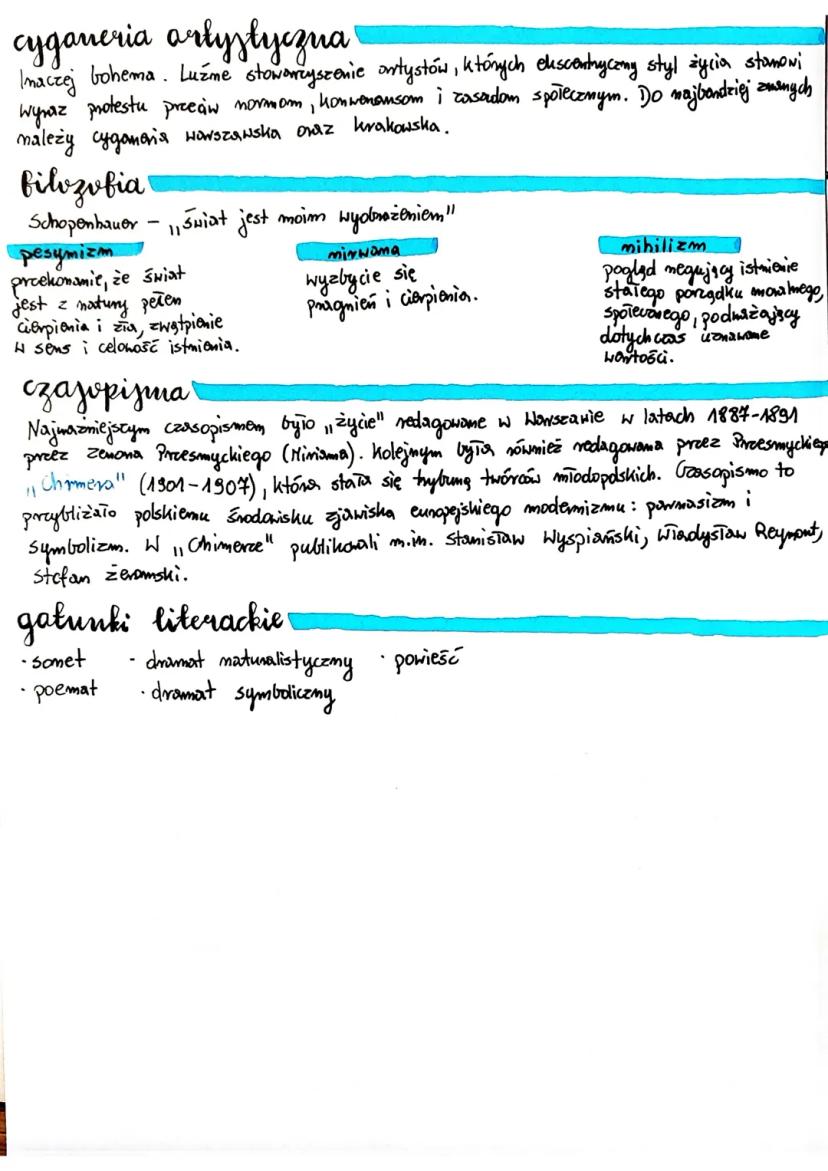 cyganeria artystyczna
Inaczej bohema. Luźne stowarzyszenie artystów, których ekscentryczny styl życia stanowi
wyraz protestu przeciw normom, konwenansom i zasadom społecznym. Do najbardziej znanych
należy cyganeria warszawska oraz krakowska.
filozofia
Schopenhauer - „świat jest moim wyobrażeniem"
pesymizm
przekonanie, że świat
jest z natury pełen
cierpienia i zła, zwątpienie
w sens i celowość istnienia.
nirwana
wyzbycie się
pragnień i cierpienia.
nihilizm
pogląd negujący istnienie
stałego porządku moralnego,
społecznego, podważający
dotychczas uznawane
wartości.
czasopisma
Najważniejszym czasopismem było „życie" redagowane w Warszawie w latach 1887-1891
przez Zenona Przesmyckiego (Miriama). Kolejnym była również redagowana przez Przesmyckiego
„Chimera" (1901-1907), która stała się trybuną twórców młodopolskich. Czasopismo to
przybliżało polskiemu środowisku zjawiska europejskiego modernizmu: parnasizm i
symbolizm. W „Chimerze" publikowali m.in. Stanisław Wyspiański, Władysław Reymont,
Stefan Żeromski.
gatunki literackie
· sonet · dramat naturalistyczny · powieść
· poemat · dramat symboliczny